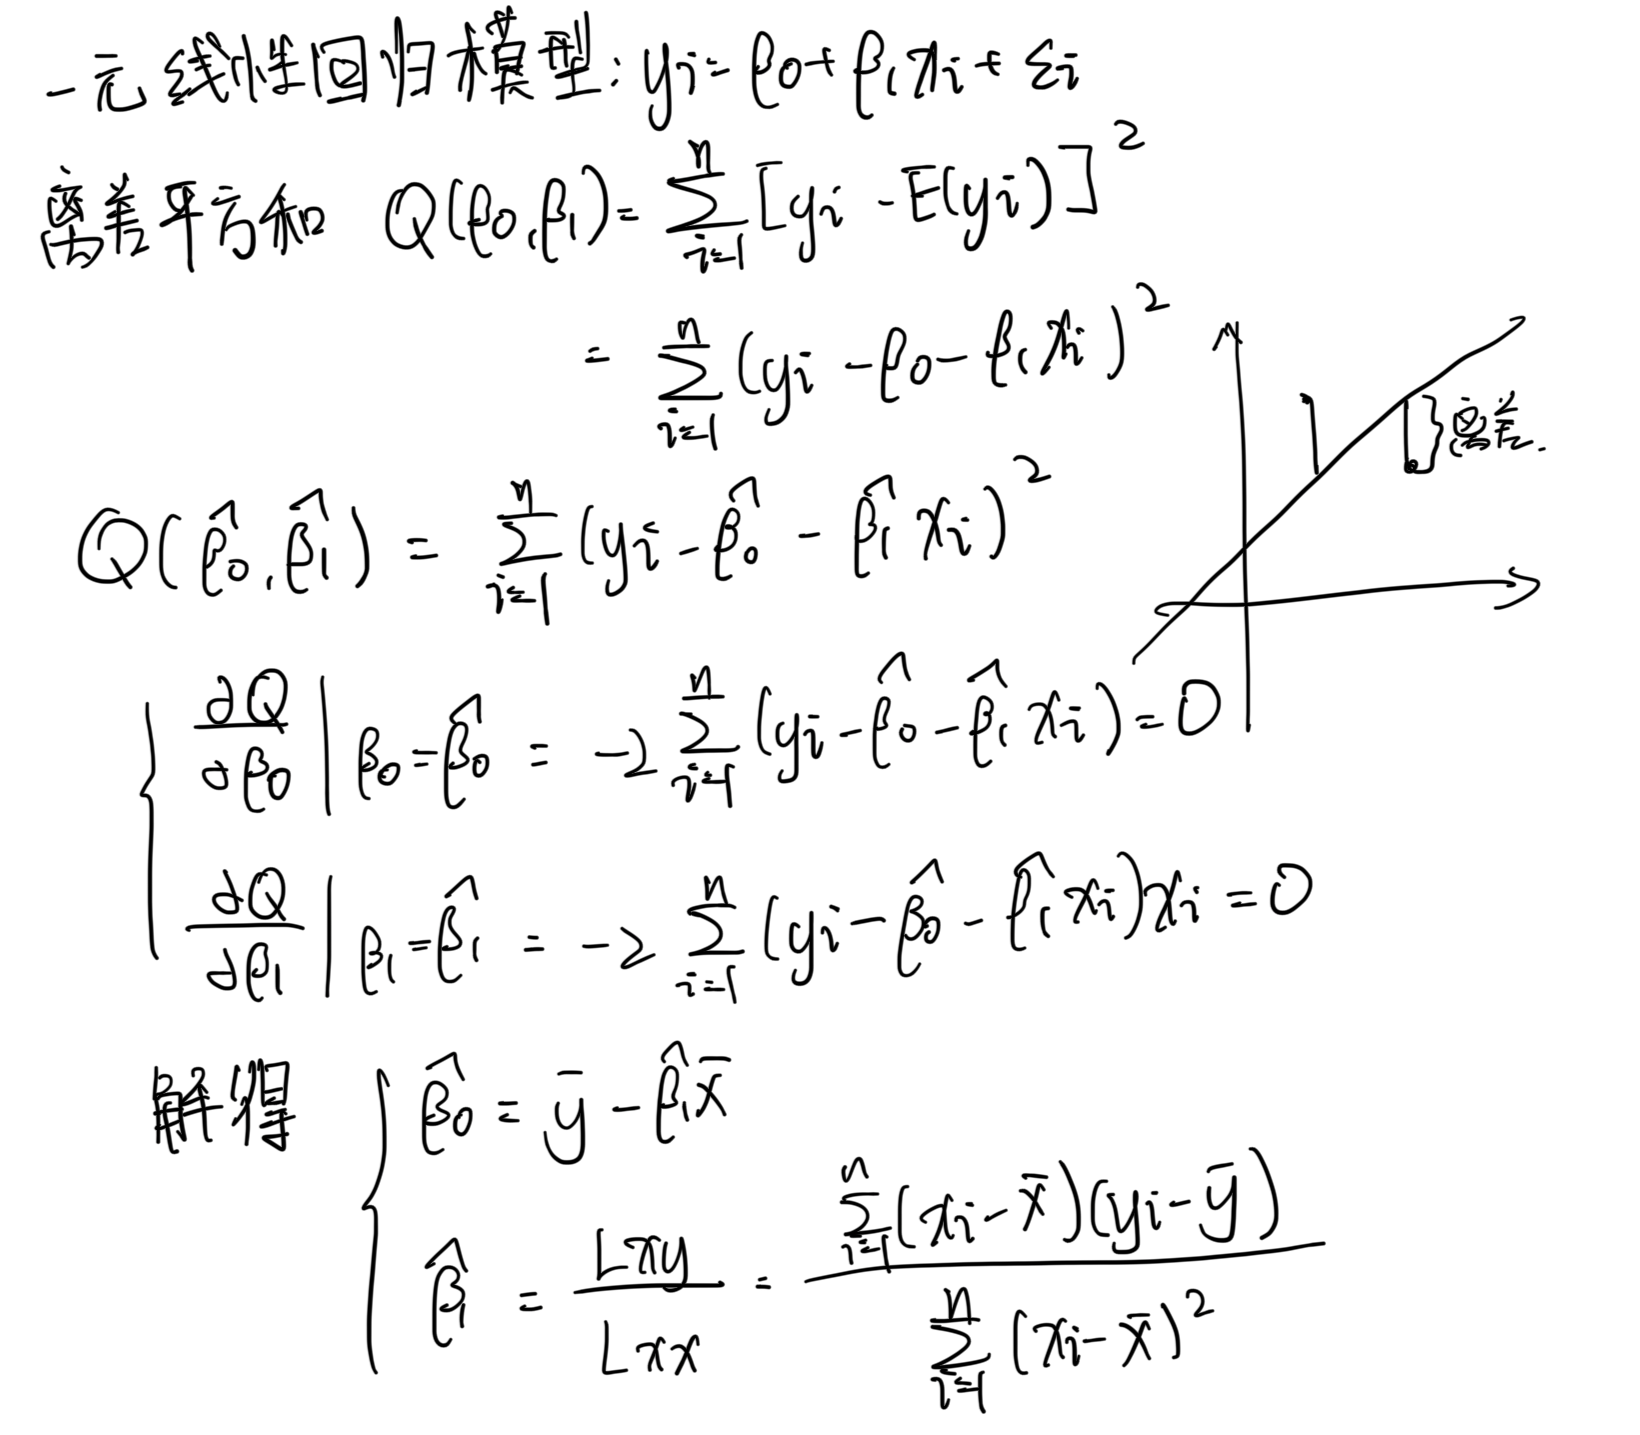 一元线性回归模型: yi = β0 + β1xi + εi
离差平方和 Q(β0,β1) = ∑_{i=1}^{n} [yi - E(yi)]²
= ∑_{i=1}^{n} (yi - β0 - β1xi)²
离差.
Q(β̂0,β̂1) = ∑_{i=1}^{n} (yi - β̂0 - β̂1xi)²
∂Q/∂β0 | β0=β̂0 = -2 ∑_{i=1}^{n} (yi - β̂0 - β̂1xi) = 0
∂Q/∂β1 | β1=β̂1 = -2 ∑_{i=1}^{n} (yi - β̂0 - β̂1xi)xi = 0
解得 β̂0 = ȳ - β̂1x̄
β̂1 = Lxy/Lxx = ∑_{i=1}^{n}(xi - x̄)(yi - ȳ) / ∑_{i=1}^{n}(xi - x̄)²